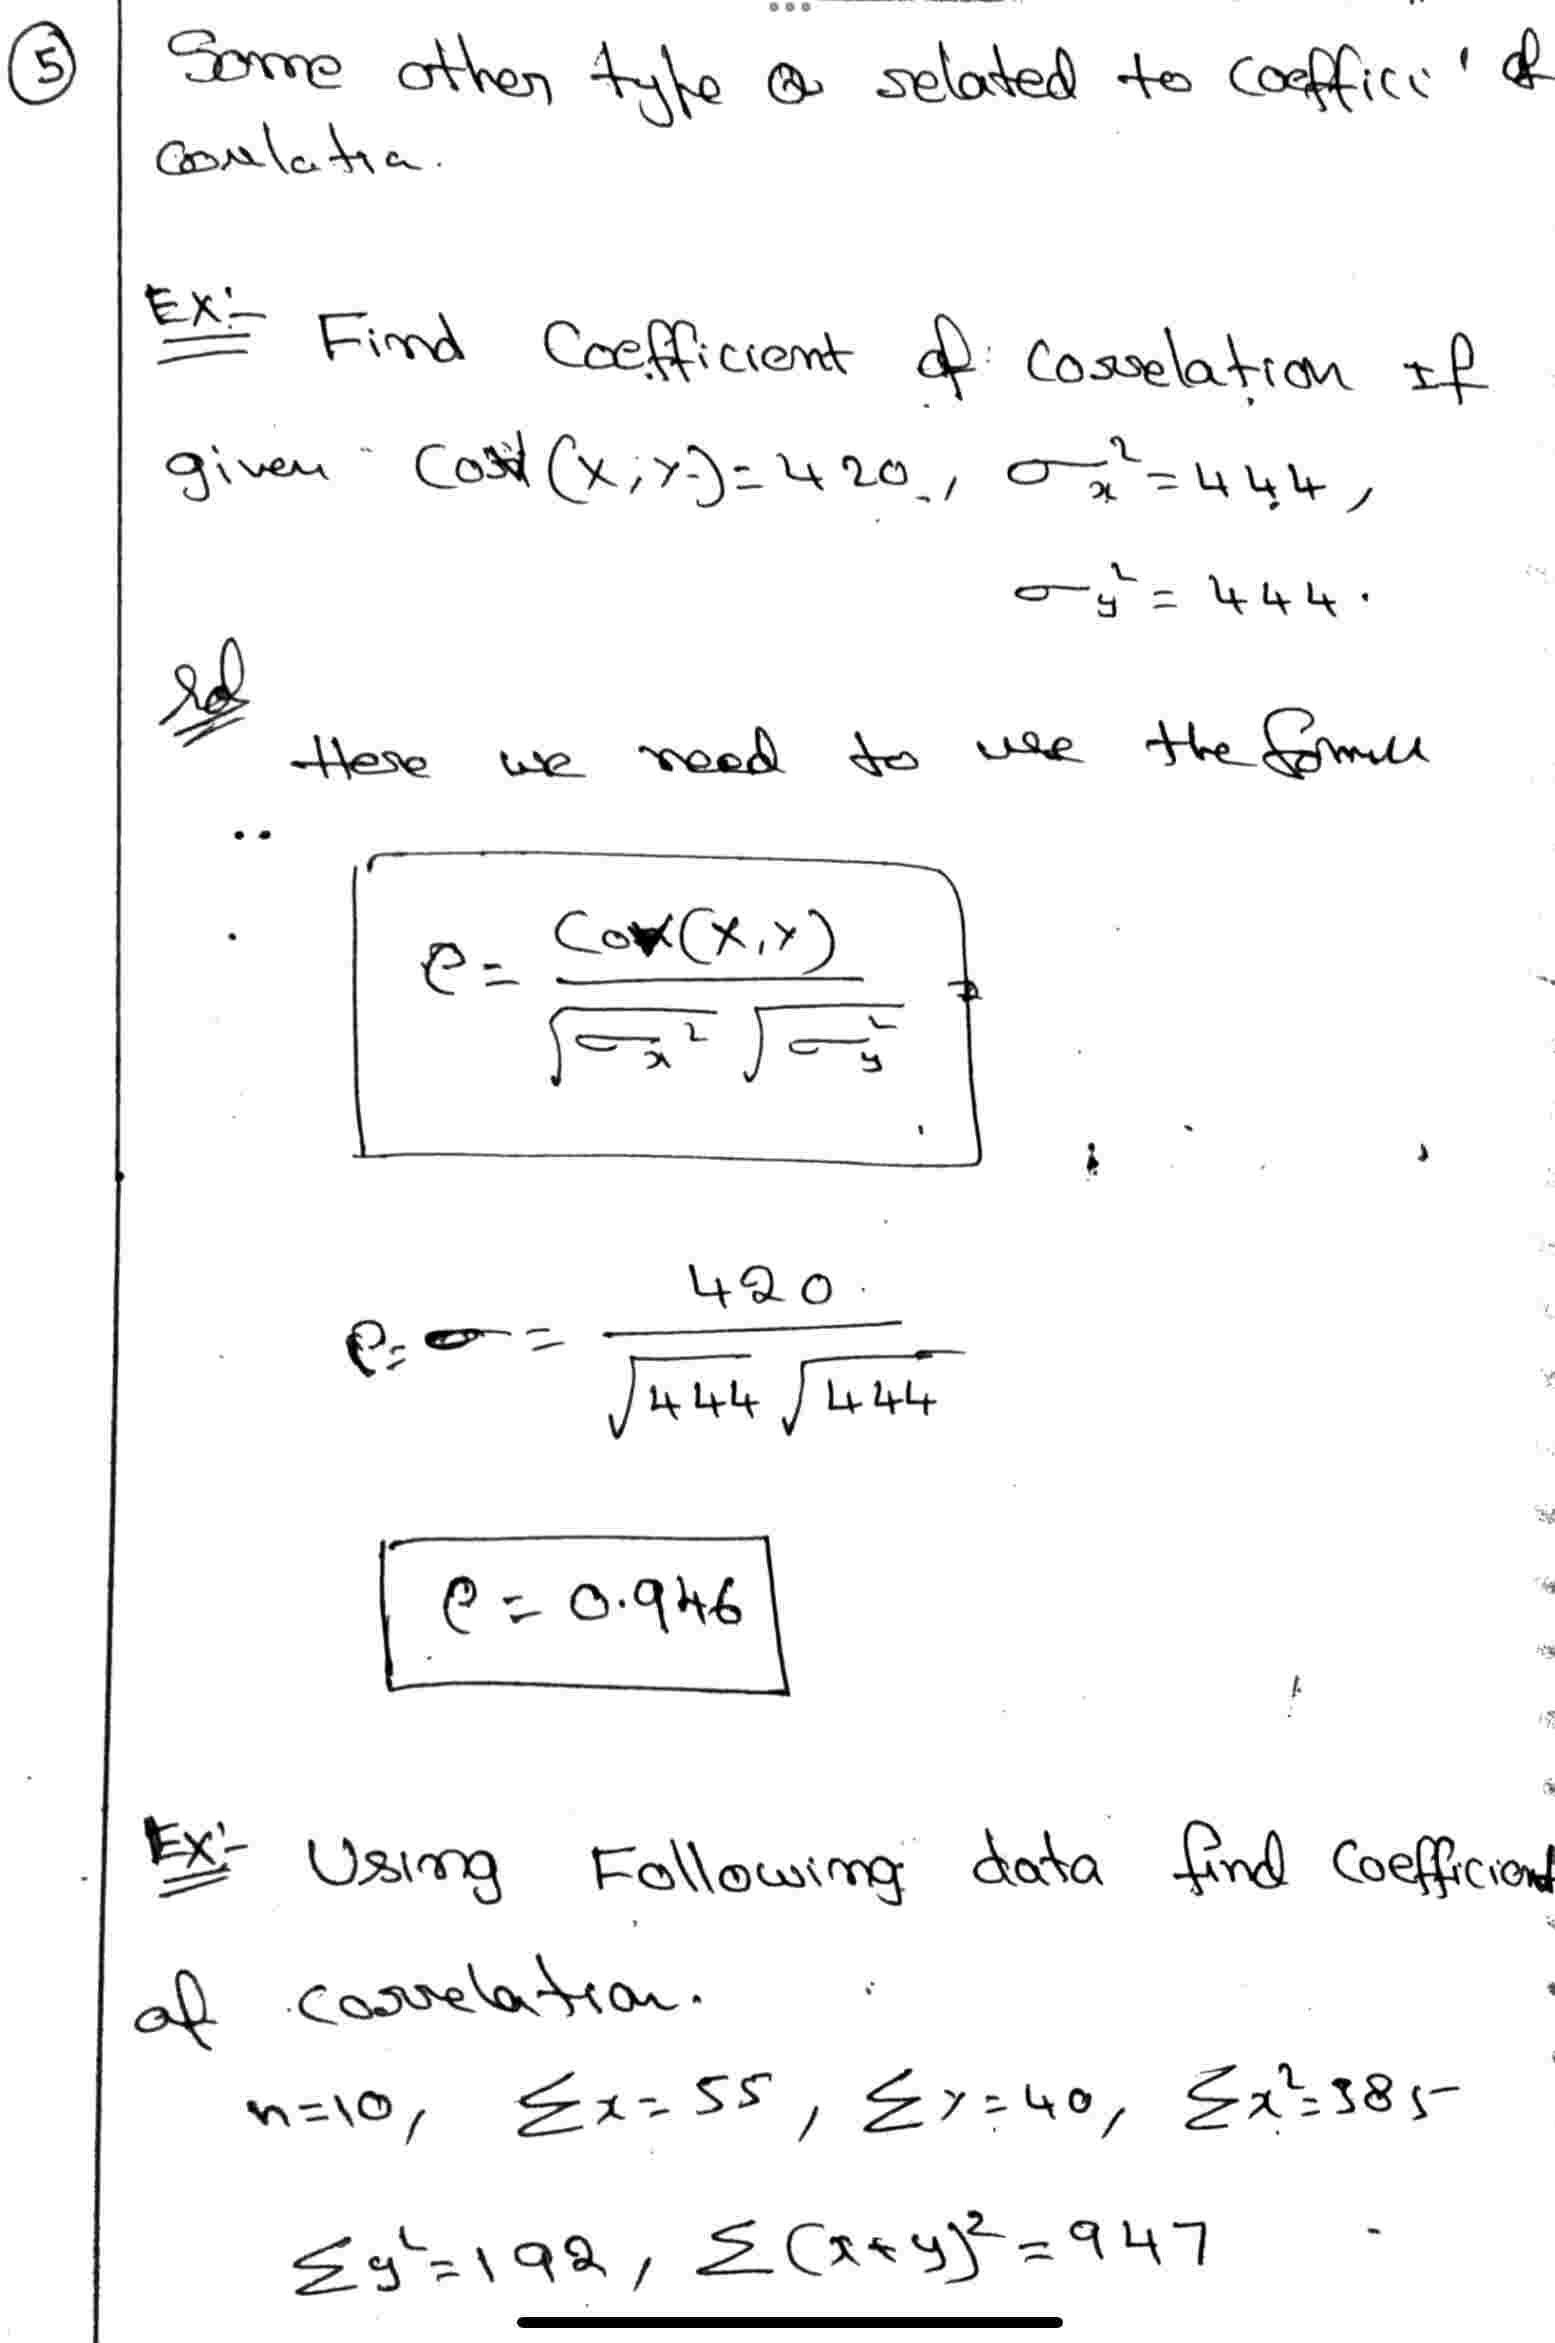 5 Some other type Q related to coeffici' of
correlatia.
Ex:- Find Coefficient of correlation If
given Cov (X,Y) = 420, σx² = 444,
σy² = 444.
Sol
Here we need to use the formu
ρ = Cov(X,Y)
√σx² √σy²
ρ = = 420
√444 √444
ρ = 0.946
Ex:- Using Following data find Coefficient
of correlation.
n=10, Σx = 55, Σy = 40, Σx² = 385
Σy² = 192, Σ(x+y)² = 947